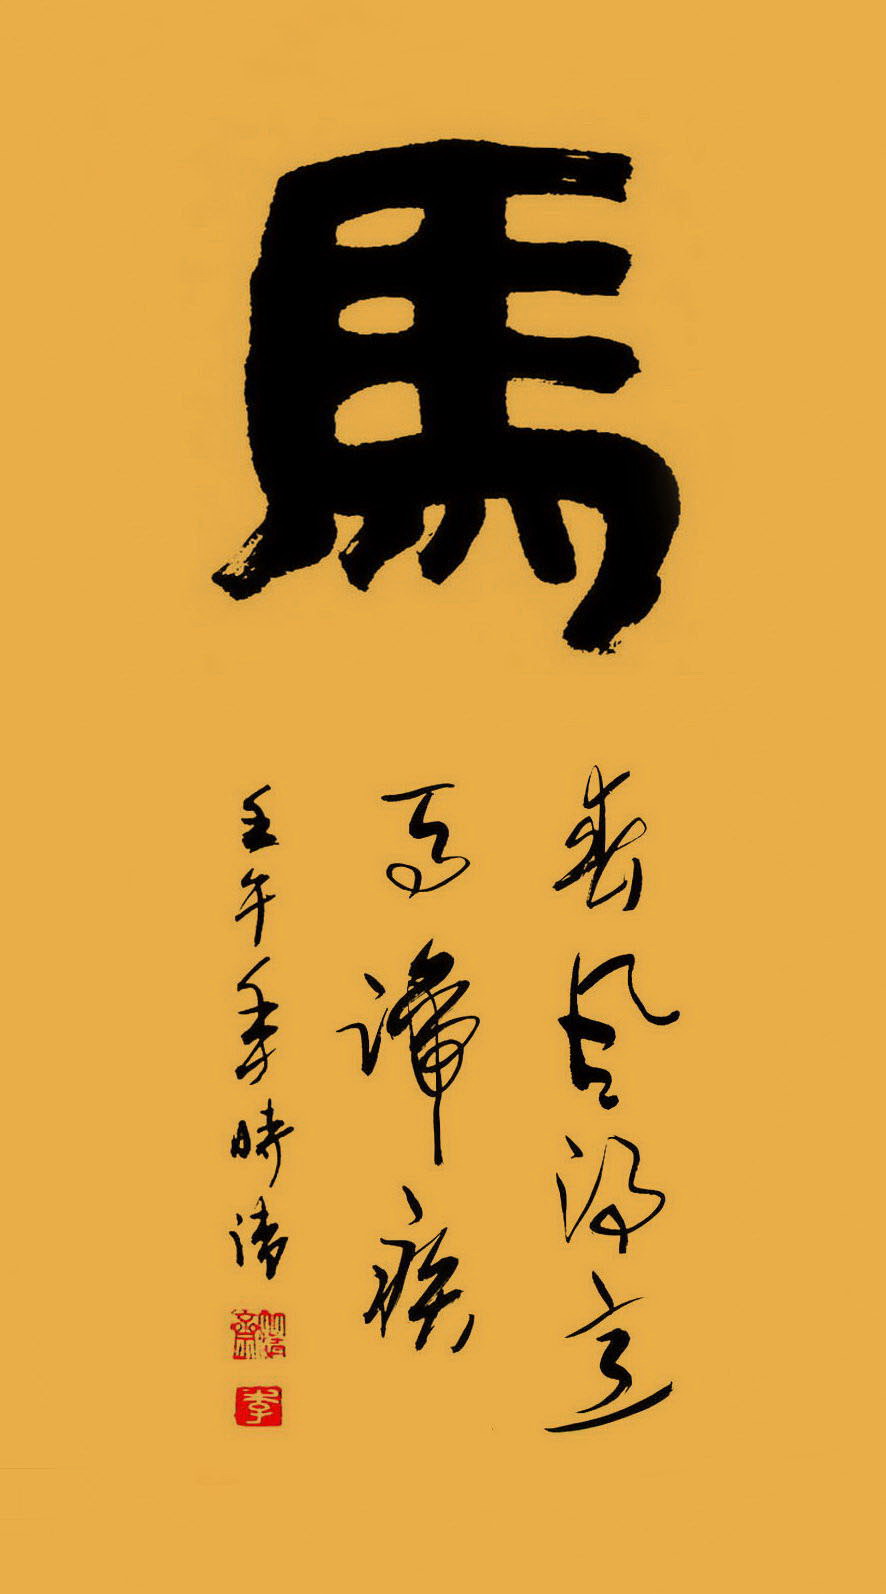 馬
春風得意
馬蹄疾
壬午年時清
李